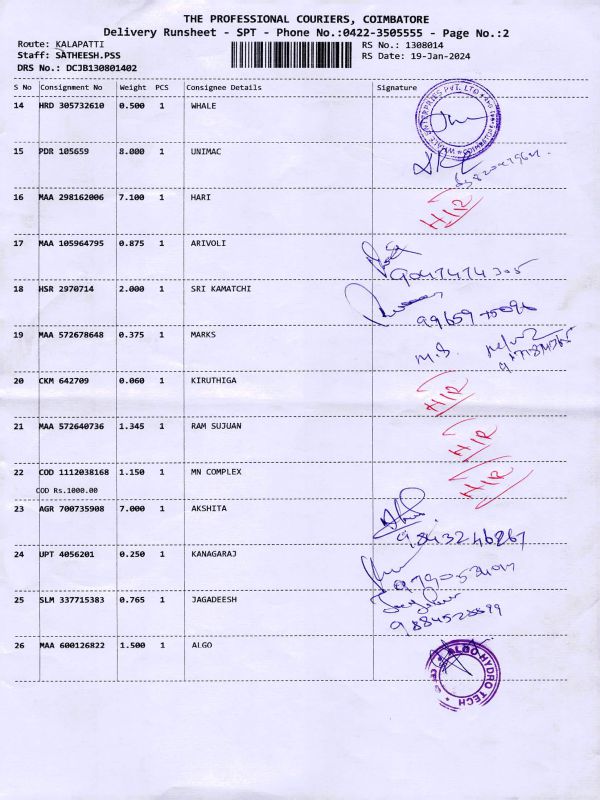 THE PROFESSIONAL COURIERS, COIMBATORE
Delivery Runsheet - SPT - Phone No.:0422-3505555 - Page No.:2
Route: KALAPATTI
Staff: SATHEESH.PSS
DRS No.: DCJB130801402
RS No.: 1308014
RS Date: 19-Jan-2024
S No Consignment No Weight PCS Consignee Details Signature
14 HRD 305732610 0.500 1 WHALE
15 PDR 105659 8.000 1 UNIMAC
16 MAA 298162006 7.100 1 HARI HIR
17 MAA 105964795 0.875 1 ARIVOLI
9047474305
18 HSR 2970714 2.000 1 SRI KAMATCHI
19 MAA 572678648 0.375 1 MARKS M.S.
20 CKM 642709 0.060 1 KIRUTHIGA HIR
21 MAA 572640736 1.345 1 RAM SUJUAN HIR
22 COD 1112038168 1.150 1 MN COMPLEX HIR
COD Rs.1000.00
23 AGR 700735908 7.000 1 AKSHITA
9843246267
24 UPT 4056201 0.250 1 KANAGARAJ
25 SLM 337715383 0.765 1 JAGADEESH
9884528899
26 MAA 600126822 1.500 1 ALGO
ALGO HYDRO TECH